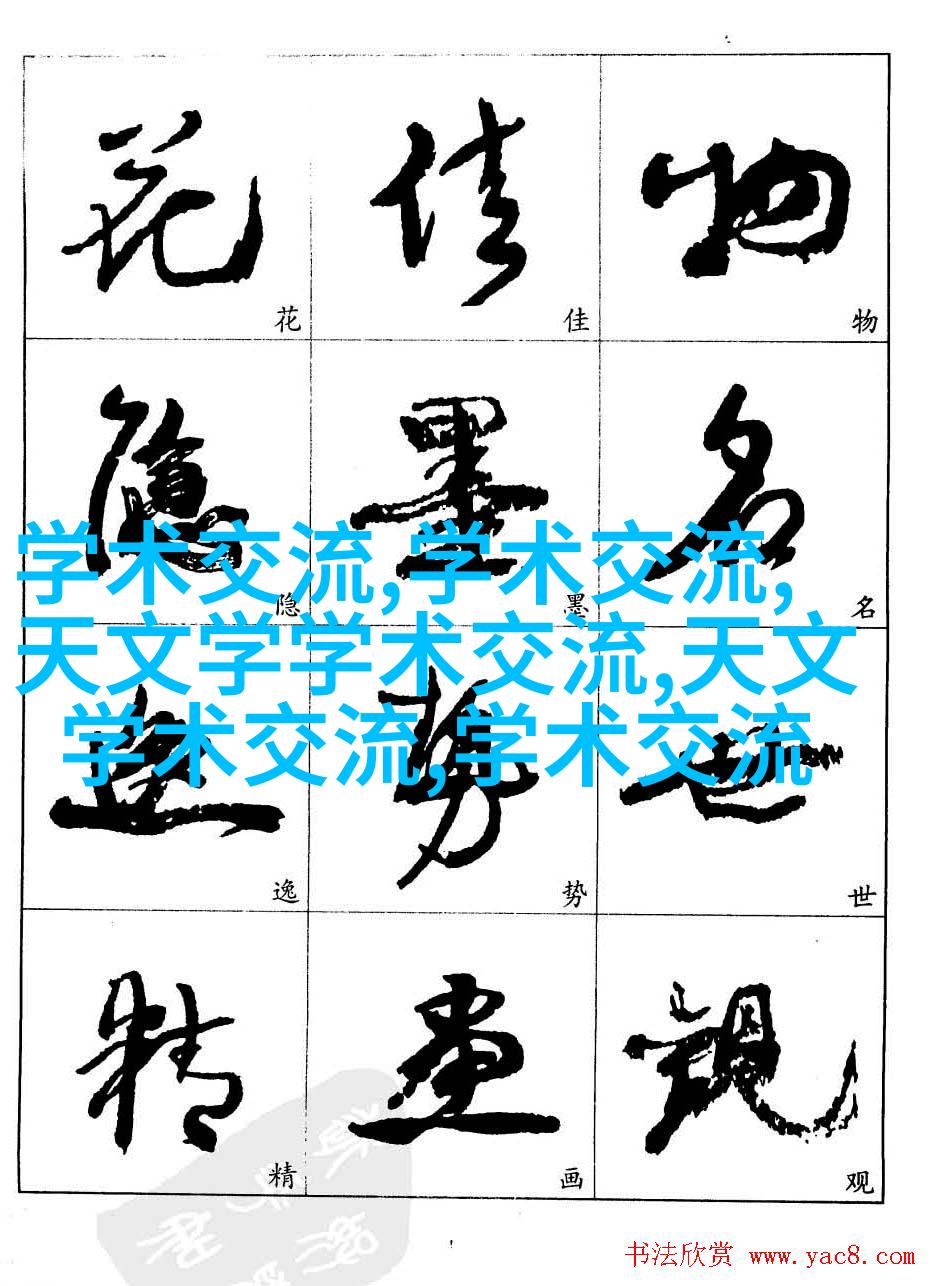 花 佳 物
花 佳 物
隐 墨 名
隐 墨 名
学术交流,学术交流,
天文学学术交流,天文
学术交流,学术交流
逸 势 世
逸 势 世
精 画 观
精 画 观
书法欣赏 www.yac8.com